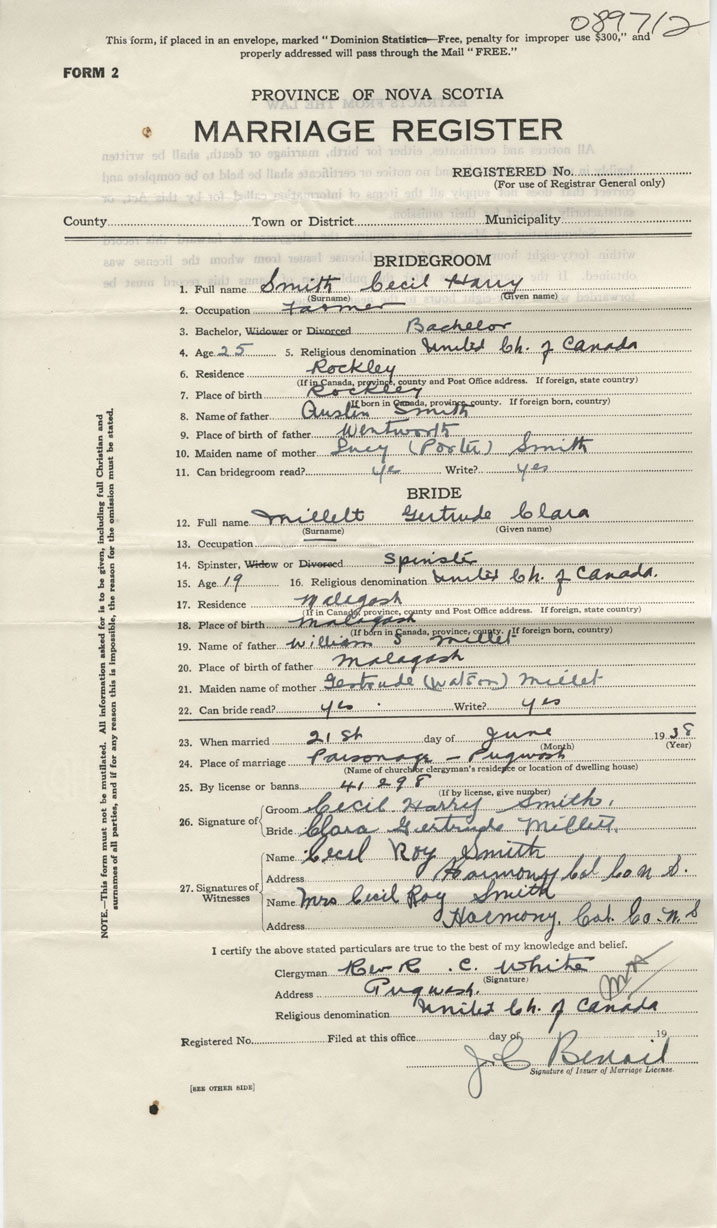 089712
This form, if placed in an envelope, marked "Dominion Statistics—Free, penalty for improper use $300," and
properly addressed will pass through the Mail "FREE."
FORM 2
PROVINCE OF NOVA SCOTIA
MARRIAGE REGISTER
REGISTERED No.
(For use of Registrar General only)
County Town or District Municipality
BRIDEGROOM
1. Full name Smith Cecil Harry
(Surname) (Given name)
2. Occupation Farmer
3. Bachelor, Widower or Divorced Bachelor
4. Age 25 5. Religious denomination United Ch. of Canada
6. Residence Rockley
(If in Canada, province, county and Post Office address. If foreign, state country)
7. Place of birth Rockley
(If born in Canada, province, county. If foreign born, country)
8. Name of father Austin Smith
9. Place of birth of father Wentworth
10. Maiden name of mother Lucy (Porter) Smith
11. Can bridegroom read? yes Write? yes
BRIDE
12. Full name Millett Gertrude Clara
(Surname) (Given name)
13. Occupation
14. Spinster, Widow or Divorced Spinster
15. Age 19 16. Religious denomination United Ch. of Canada.
17. Residence Malagash
(If in Canada, province, county and Post Office address. If foreign, state country)
18. Place of birth Malagash
(If born in Canada, province, county. If foreign born, country)
19. Name of father William S Millet
20. Place of birth of father Malagash
21. Maiden name of mother Gertrude (Watson) Millet
22. Can bride read? yes Write? yes
23. When married 21st day of June 1938
(Month) (Year)
24. Place of marriage Parsonage - Pugwash
(Name of church or clergyman's residence or location of dwelling house)
25. By license or banns 41298
(If by license, give number)
26. Signature of Groom Cecil Harry Smith.
Bride Clara Gertrude Millett.
27. Signatures of Witnesses
Name Cecil Roy Smith
Address Harmony Col Co N S.
Name Mrs Cecil Roy Smith
Address Harmony, Col. Co. N. S
I certify the above stated particulars are true to the best of my knowledge and belief.
Clergyman Rev R. C. White
(Signature)
Address Pugwash.
Religious denomination United Ch. of Canada
Registered No. Filed at this office day of 19
J C Benoit
Signature of Issuer of Marriage License.
[SEE OTHER SIDE]
NOTE.—This form must not be mutilated. All information asked for is to be given, including full Christian and
surnames of all parties, and if for any reason this is impossible, the reason for the omission must be stated.